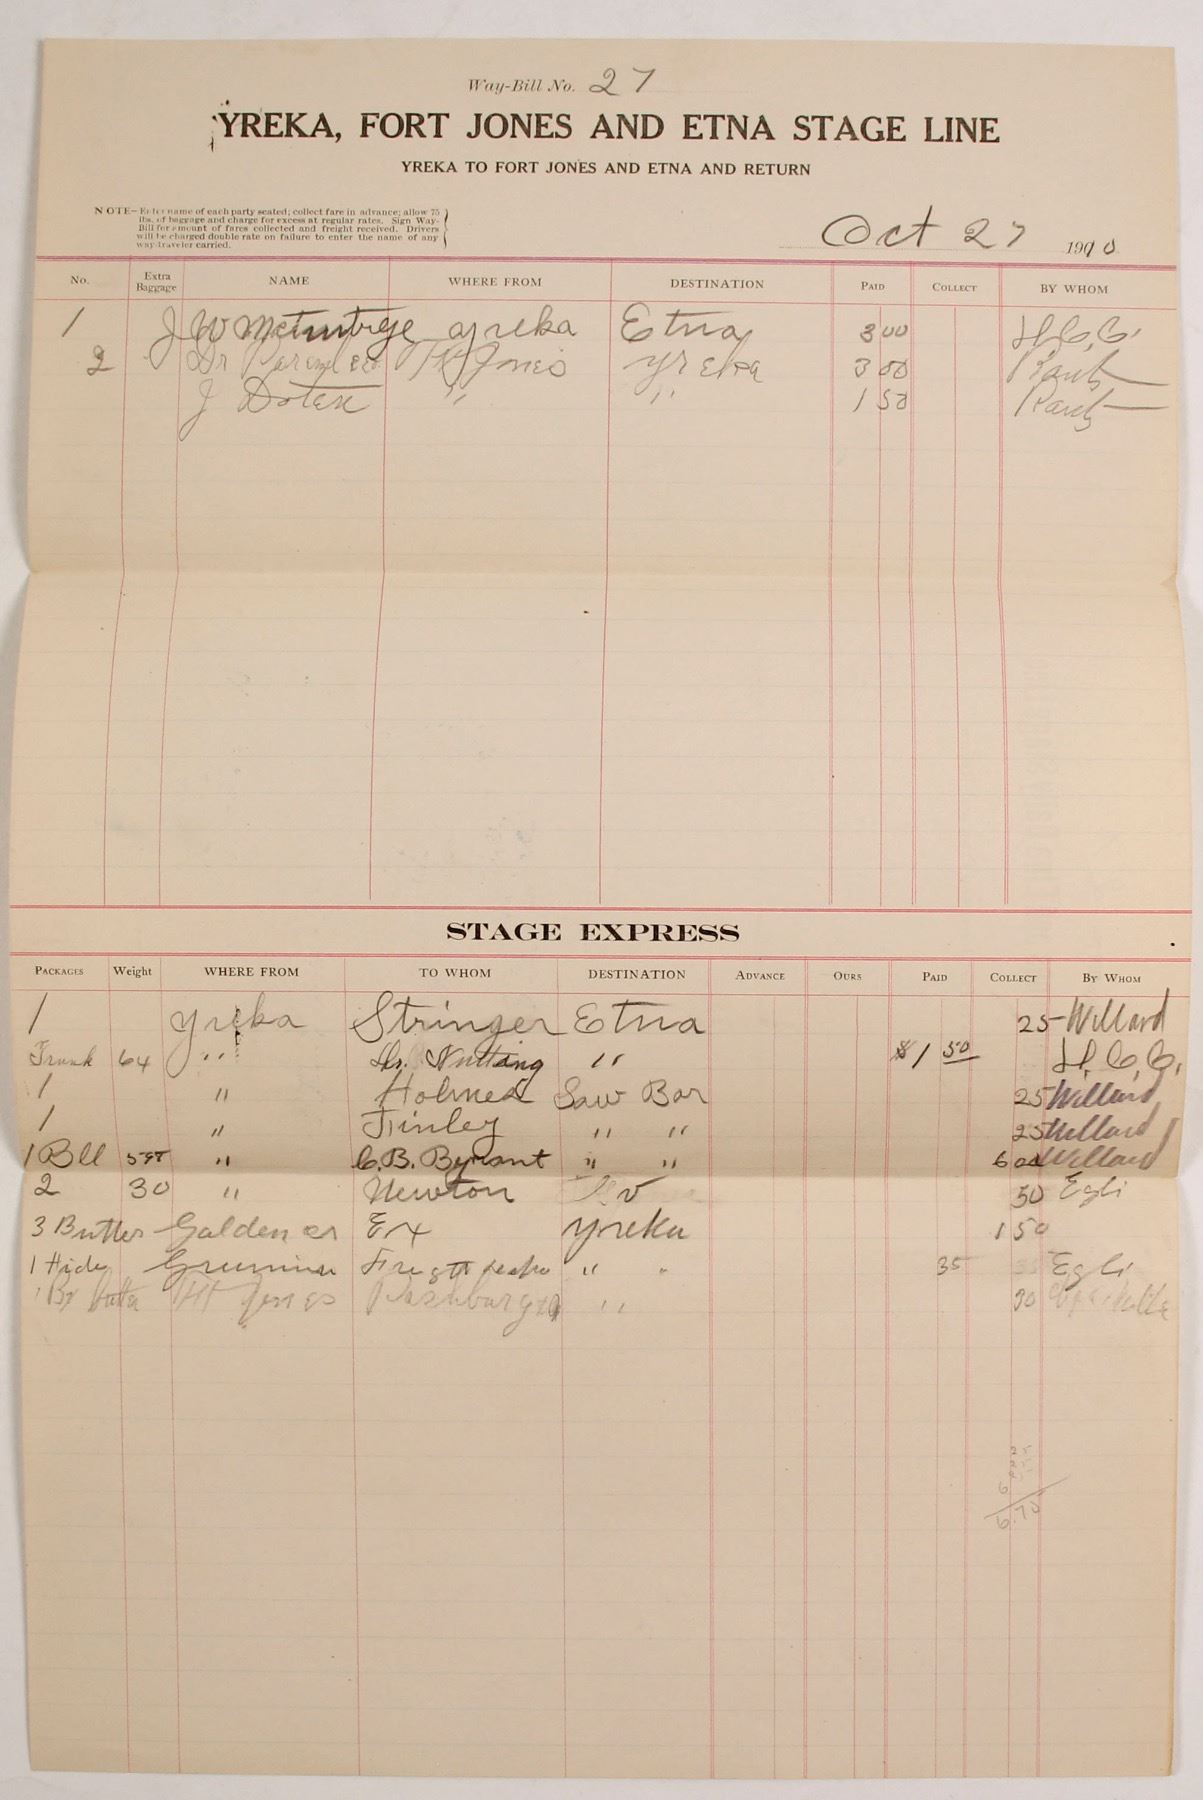 Way-Bill No. 27
YREKA, FORT JONES AND ETNA STAGE LINE
YREKA TO FORT JONES AND ETNA AND RETURN
NOTE—Enter name of each party seated; collect fare in advance; allow 75
lbs. of baggage and charge for excess at regular rates. Sign Way-
Bill for amount of fares collected and freight received. Drivers
will be charged double rate on failure to enter the name of any
way-traveler carried.
Oct 27 1900
No. Extra Baggage NAME WHERE FROM DESTINATION PAID COLLECT BY WHOM
1 J W yreka Etna 3 00 H.C.C.
2 Dr Ft Jones yreka 3 00
J Doten " " 1 50
STAGE EXPRESS
PACKAGES Weight WHERE FROM TO WHOM DESTINATION ADVANCE OURS PAID COLLECT BY WHOM
1 yreka Stringer Etna 25 Willard
Trunk 64 " Dr. Nutting " $1 50 H.C.C.
1 " Holmes Saw Bar 25 Willard
1 " Finley " " 25 Willard
1 Bll " C.B. Bynant " " 6 00 Willard
2 30 " Newton 50 Egli
3 Butter Ex yreka 1 50
1 Hide " " 35 Egli
1 Bx butter Ft Jones " 30
6.70